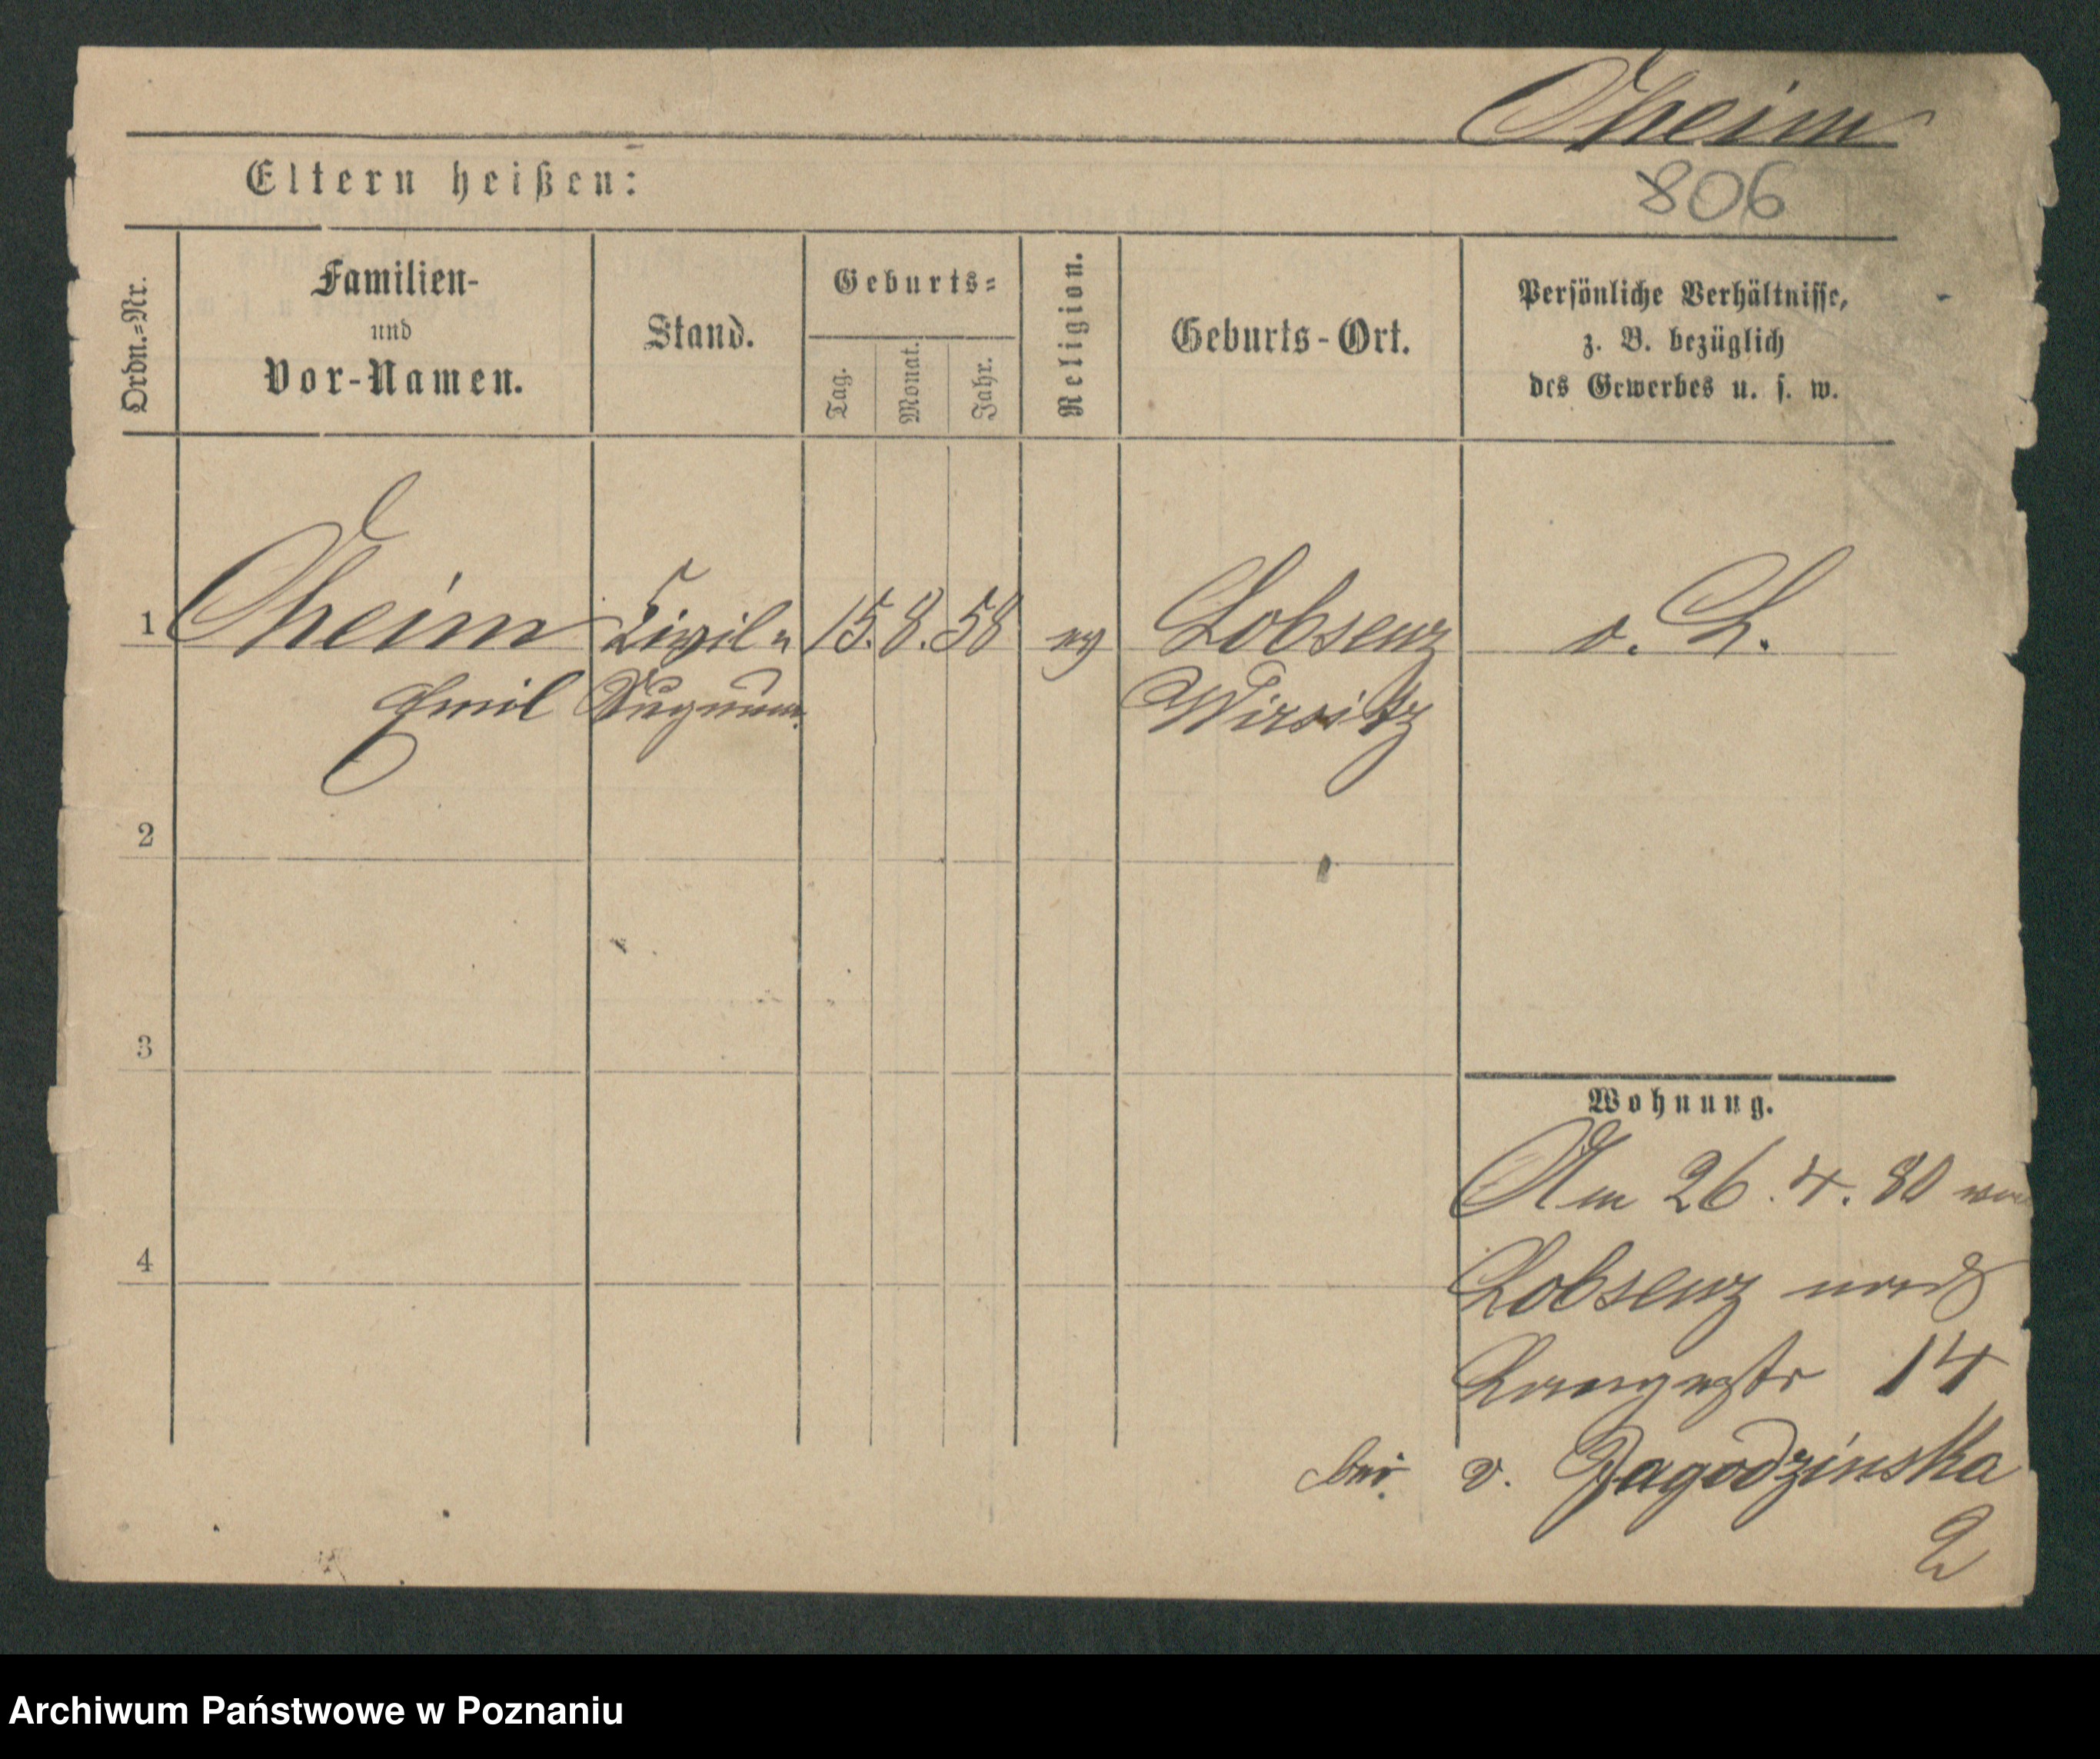 Oheim
806
Eltern heißen:
Ordn.=Nr.
Familien-
und
Vor-Namen.
Stand.
Geburts=
Tag.
Monat.
Jahr.
Religion.
Geburts-Ort.
Persönliche Verhältnisse,
z. B. bezüglich
des Gewerbes u. s. w.
1 Oheim Civil= 15. 8. 58 ev Lobsenz v. L.
Emil Wirsitz
2
3
4
Wohnung.
Am 26. 4. 80 von
Lobsenz nach
Langestr 14
bei v. Jagodzinska
2
Archiwum Państwowe w Poznaniu